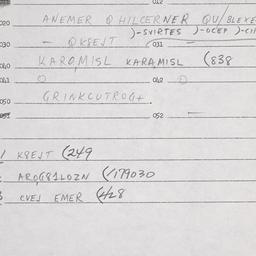 012
020 ANEMER O HILCERNER QU/BLEXE
)-SVIRTES )-OCEP )-CH
030 - OKSEJT 031
040 KARQMISL KARAMISL (838
041 O 042 O
050 GRINKCUTROG+.
051 052
1 K8EJT (249
2 AROG81LOZN (/179030
3 CVEJ EMER (4/28